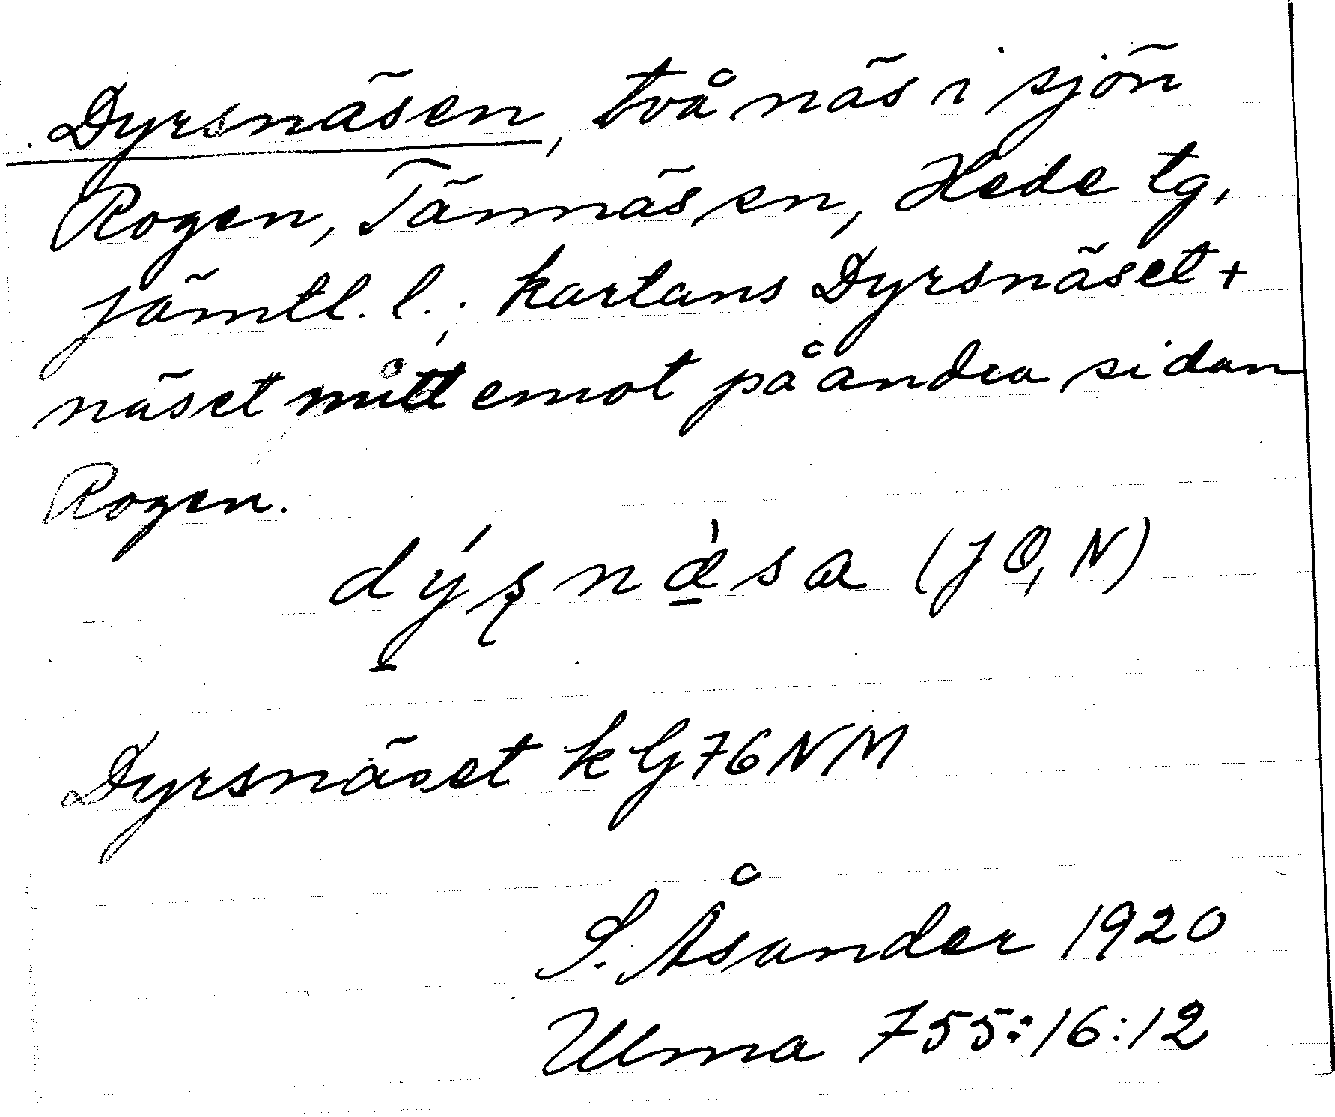 Dyrsnäsen, två näs i sjön
Rogen, Tännäs sn, Hede tg,
Jämtl. l.; kartans Dyrsnäset +
näset mitt emot på andra sidan
Rogen.
dýʂnæ̀sa (JO, N)
Dyrsnäset k G 76 NM
S. Åsander 1920
Ulma 755:16:12